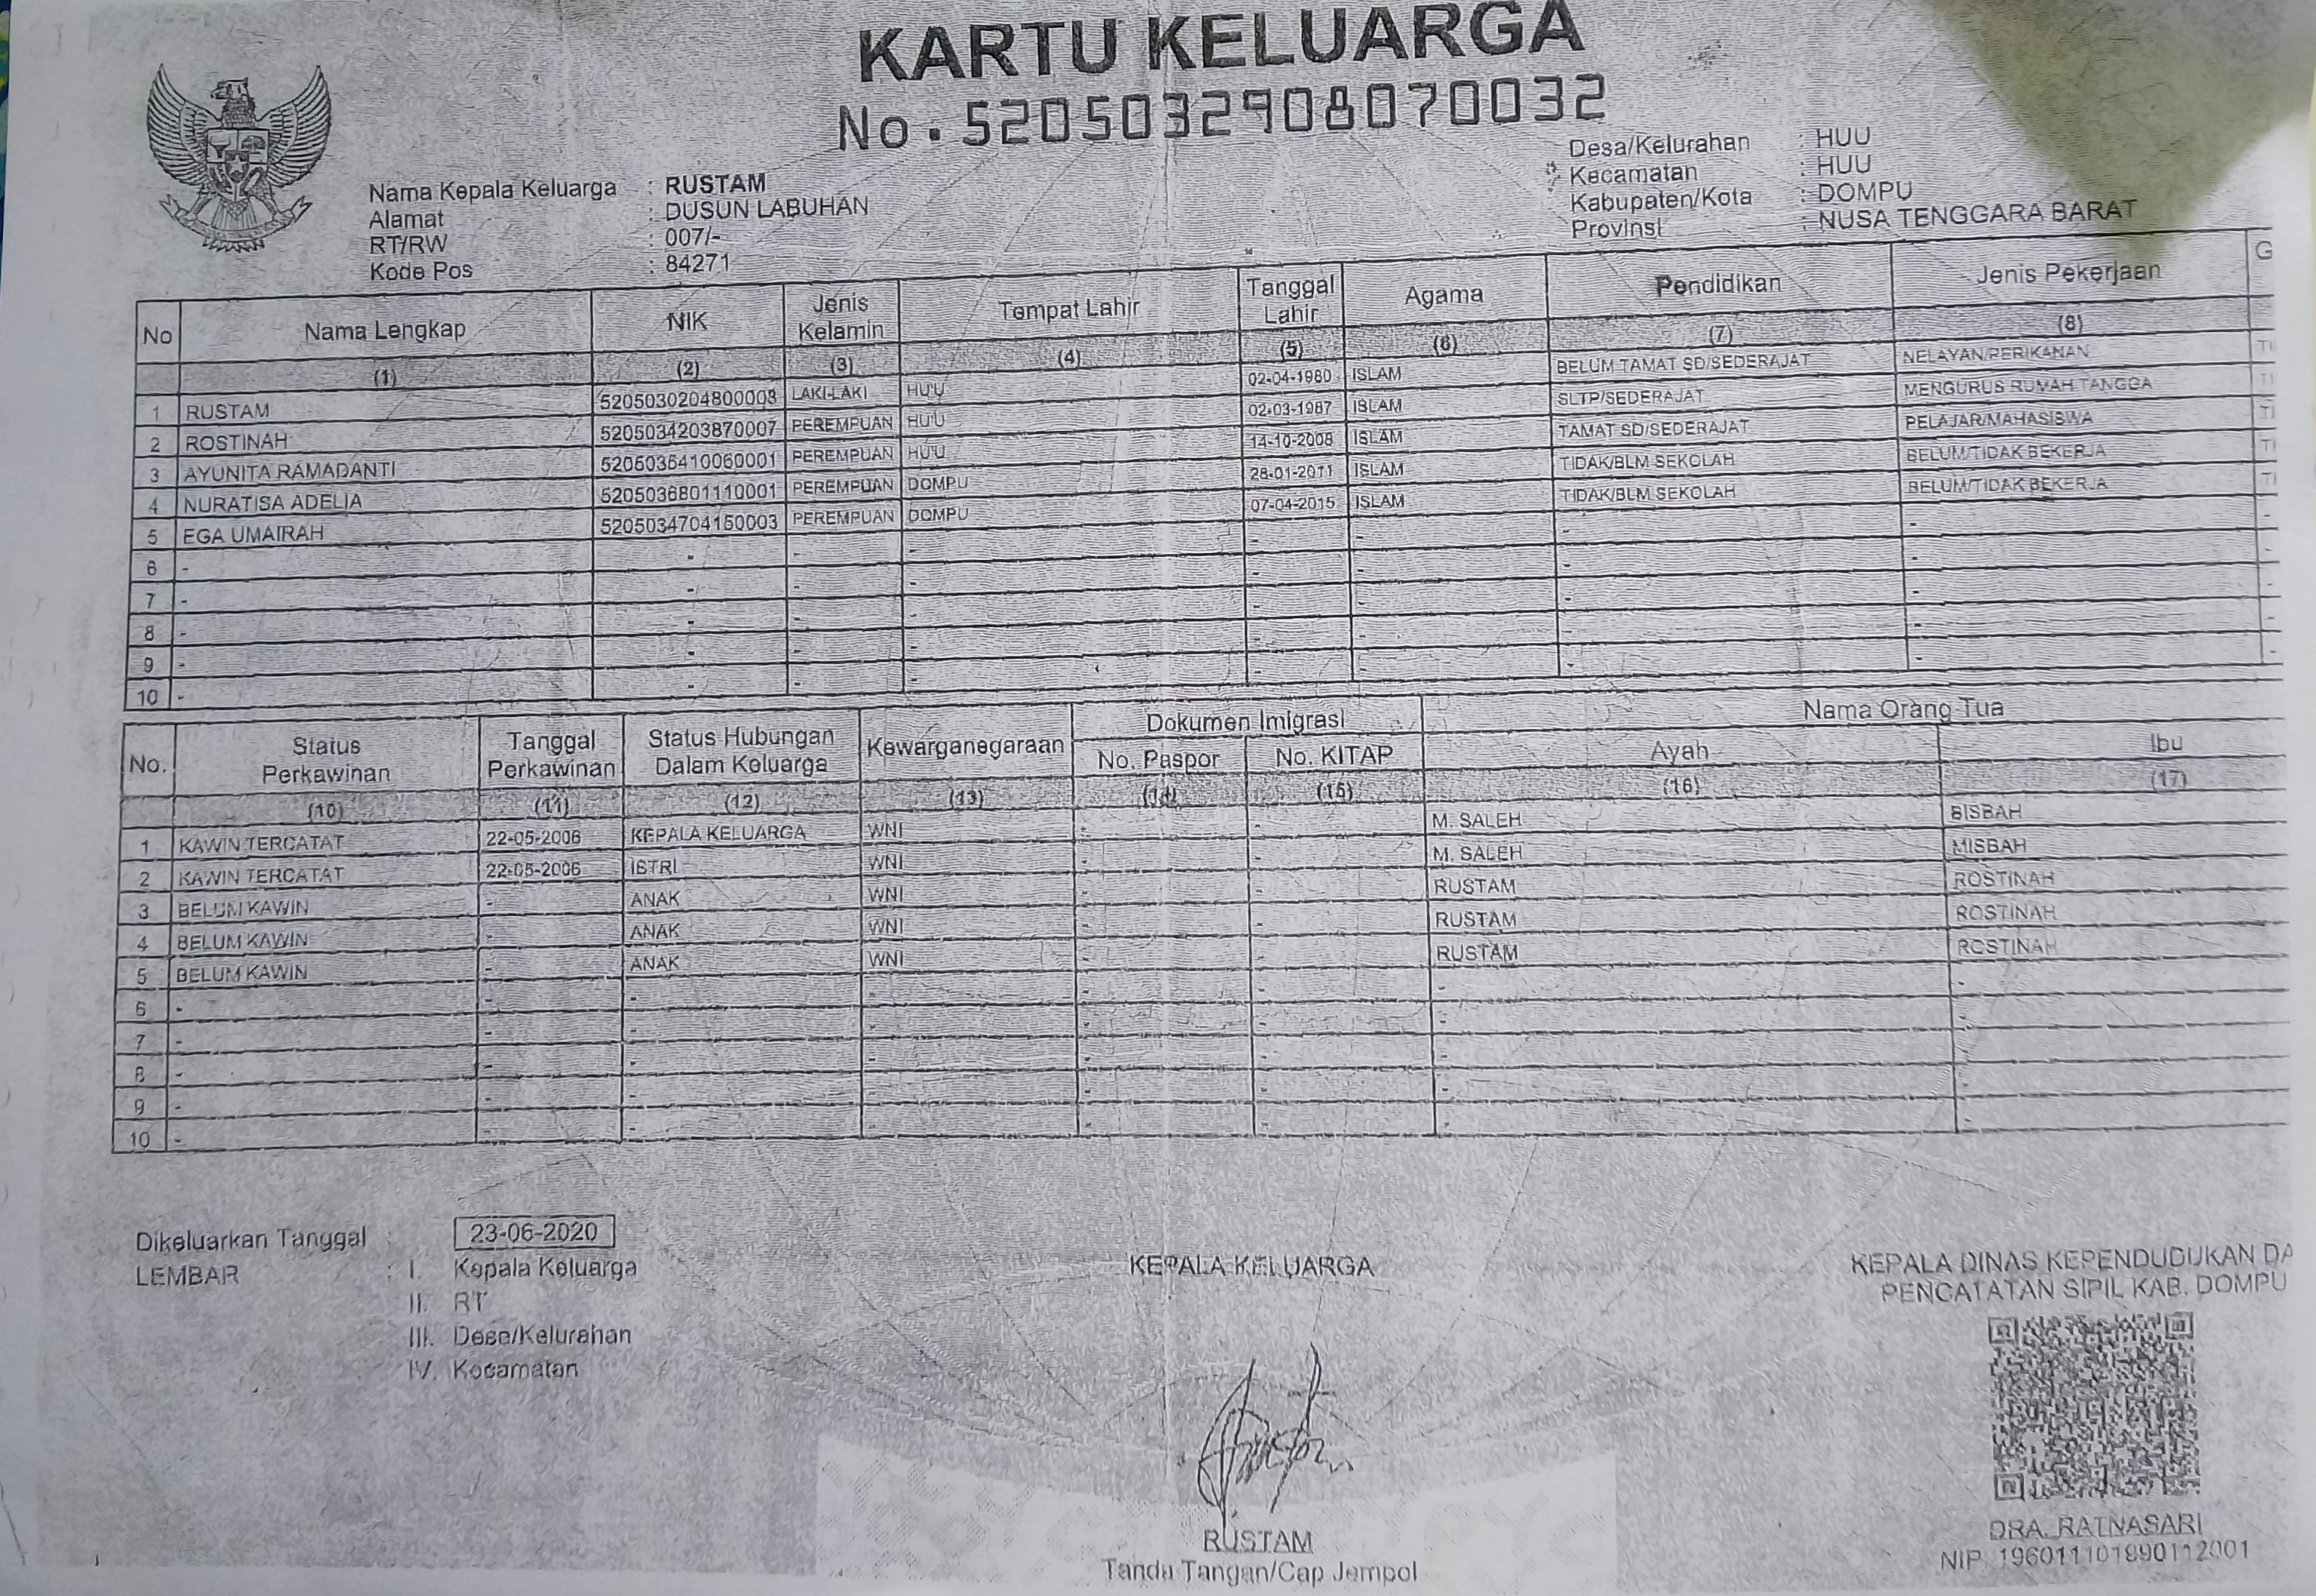 KARTU KELUARGA
No. 5205032908070032
Nama Kepala Keluarga : RUSTAM
Alamat : DUSUN LABUHAN
RT/RW : 007/-
Kode Pos : 84271
Desa/Kelurahan : HUU
Kecamatan : HUU
Kabupaten/Kota : DOMPU
Provinsi : NUSA TENGGARA BARAT
No Nama Lengkap NIK Jenis Kelamin Tempat Lahir Tanggal Lahir Agama Pendidikan Jenis Pekerjaan G
(1) (2) (3) (4) (5) (6) (7) (8)
1 RUSTAM 5205030204800003 LAKI-LAKI HU'U 02-04-1980 ISLAM BELUM TAMAT SD/SEDERAJAT NELAYAN/PERIKANAN
2 ROSTINAH 5205034203870007 PEREMPUAN HU'U 02-03-1987 ISLAM SLTP/SEDERAJAT MENGURUS RUMAH TANGGA
3 AYUNITA RAMADANTI PEREMPUAN HU'U 14-10-2008 ISLAM TAMAT SD/SEDERAJAT PELAJAR/MAHASISWA
4 NURATISA ADELIA 5205036801110001 PEREMPUAN DOMPU 28-01-2011 ISLAM TIDAK/BLM SEKOLAH BELUM/TIDAK BEKERJA
5 EGA UMAIRAH 5205034704150003 PEREMPUAN DOMPU 07-04-2015 ISLAM TIDAK/BLM SEKOLAH BELUM/TIDAK BEKERJA
6 - - - - - - - -
7 - - - - - - - -
8 - - - - - - - -
9 - - - - - - - -
10 - - - - - - - -
No. Status Perkawinan Tanggal Perkawinan Status Hubungan Dalam Keluarga Kewarganegaraan Dokumen Imigrasi Nama Orang Tua
No. Paspor No. KITAP Ayah Ibu
(10) (11) (12) (13) (14) (15) (16) (17)
1 KAWIN TERCATAT 22-05-2006 KEPALA KELUARGA WNI - - M. SALEH BISBAH
2 KAWIN TERCATAT 22-05-2006 ISTRI WNI - - M. SALEH MISBAH
3 BELUM KAWIN - ANAK WNI - - RUSTAM ROSTINAH
4 BELUM KAWIN - ANAK WNI - - RUSTAM ROSTINAH
5 BELUM KAWIN - ANAK WNI - - RUSTAM ROSTINAH
6 - - - - - - - -
7 - - - - - - - -
8 - - - - - - - -
9 - - - - - - - -
10 - - - - - - - -
Dikeluarkan Tanggal : 23-06-2020
LEMBAR : I. Kepala Keluarga
II. RT
III. Desa/Kelurahan
IV. Kecamatan
KEPALA KELUARGA
RUSTAM
Tanda Tangan/Cap Jempol
KEPALA DINAS KEPENDUDUKAN DA
PENCATATAN SIPIL KAB. DOMPU
DRA. RATNASARI
NIP. 196011101990112001